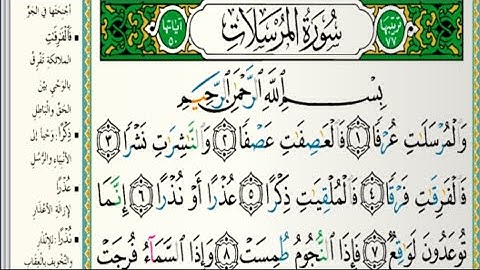 ترتيبها ٧٧
سورة المرسلات
آياتها ٥٠
بِسْمِ ٱللَّهِ ٱلرَّحْمَٰنِ ٱلرَّحِيمِ
وَٱلْمُرْسَلَٰتِ عُرْفًا ١ فَٱلْعَٰصِفَٰتِ عَصْفًا ٢ وَٱلنَّٰشِرَٰتِ نَشْرًا ٣
فَٱلْفَٰرِقَٰتِ فَرْقًا ٤ فَٱلْمُلْقِيَٰتِ ذِكْرًا ٥ عُذْرًا أَوْ نُذْرًا ٦ إِنَّمَا
تُوعَدُونَ لَوَٰقِعٌ ٧ فَإِذَا ٱلنُّجُومُ طُمِسَتْ ٨ وَإِذَا ٱلسَّمَآءُ فُرِجَتْ
أجنحتها في الجو
فَٱلْفَٰرِقَٰتِ
الملائكة تفرق
بالوحي بين
الحق والباطل
ذِكْرًا: وحيا إلى
الأنبياء والرسل
عُذْرًا
لإزالة الأعذار
نُذْرًا: للإنذار
والتخويف بالعقاب